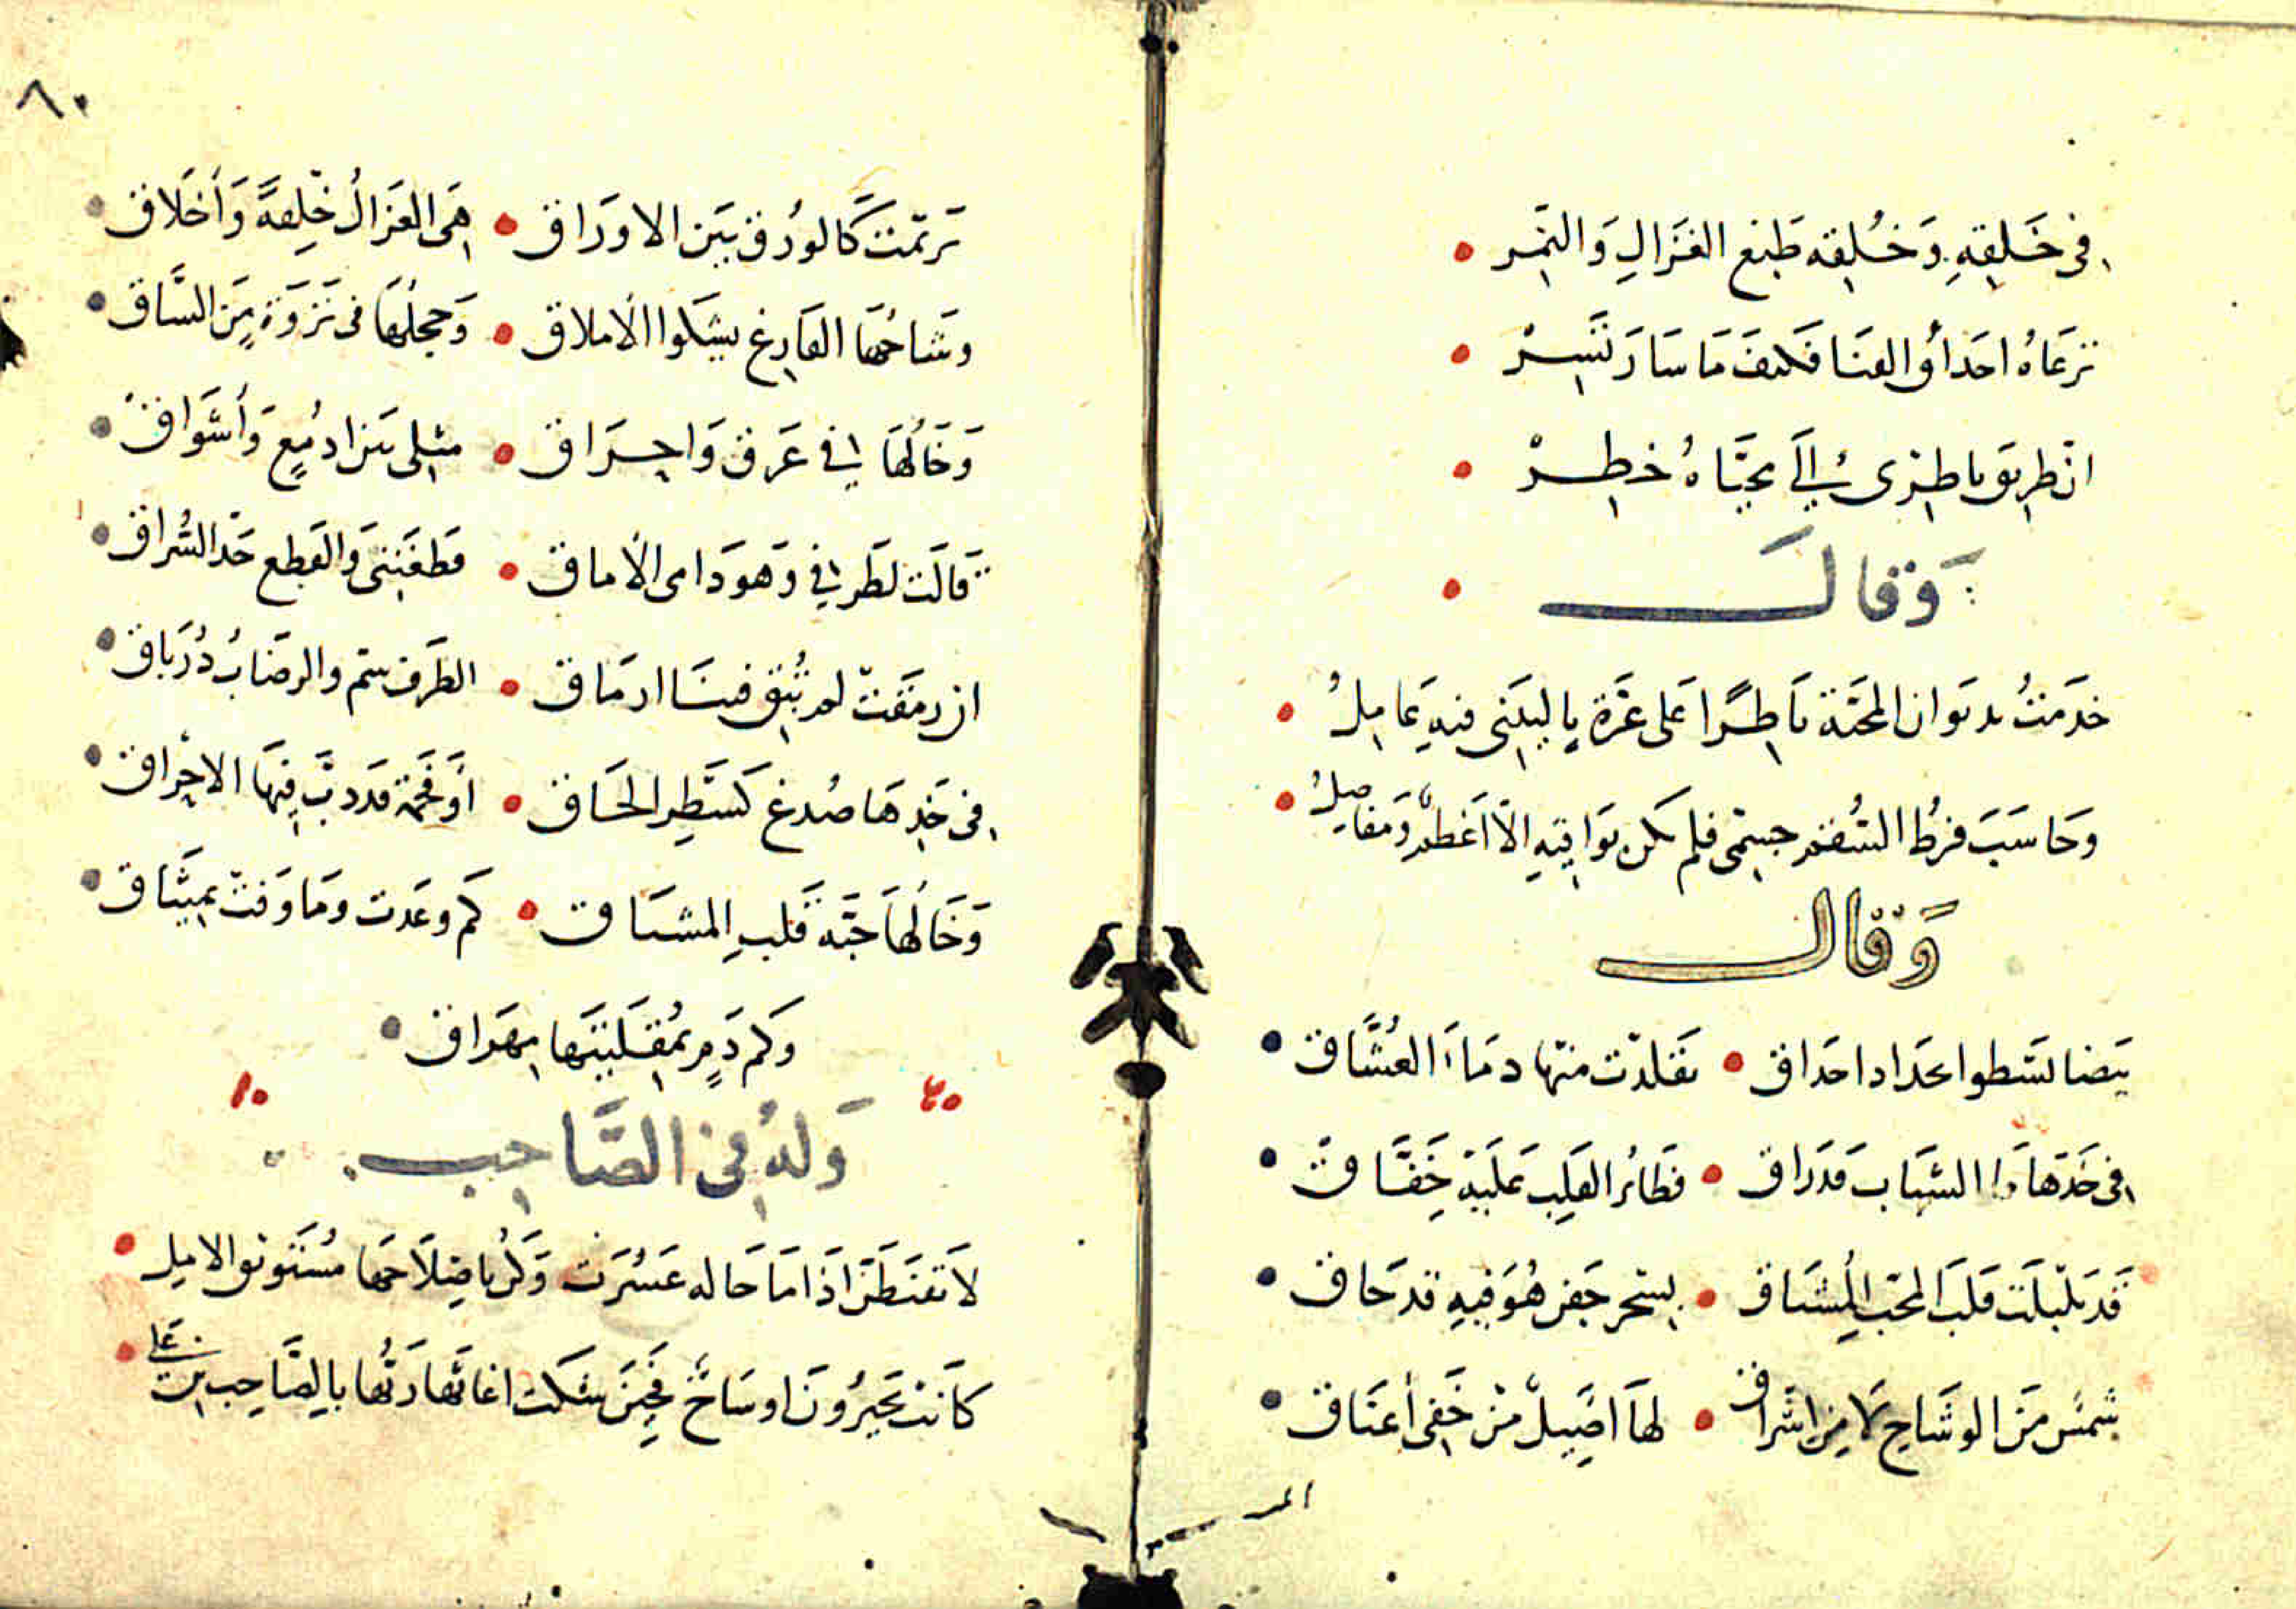 فى خَلِقِهِ وَخُلِقِه طَبْع الغَزَالِ وَالنَّمِر
ترعَاهُ احَداقُ القنَا فكيفَ مَا سَارَ تَسِرْ
انّ طريق ناظرى إلى محيَّاهُ خطِرْ
وَقال
خدَمتُ بديوان المحبّة نَاظِرًا عَلى غرَّة يا ليتَنى فيهِ عَامِلُ
وَحاسَبَ فرطُ السُّقم جسمى فلم يكن يوَافيهِ الّا أَعْظُمٌ وَمفاصِلُ
وَقال
بَيضا تسْطوا بحدَاد احدَاق • تقلدّت منها دمَاءَ العُشَّاق
فى خَدّها مَا الشبَاب قدرَاق • فطَائر القلبِ عَليْه خَفَّاق
قَد بَلْبَلَت قلبَ المحبّ المشتاق • بسحر جَفن هُوَ فيهِ قد حَاق
شمسٌ منَ الوشَاحِ لَا من اشراق • لهَا اصَيلٌ منْ خَفى أعنَاق
ترنّمت كَالورُق بَيَن الاورَاق • هىَ الغزَالُ خِلقةً وَأخلَاق
وشَاحُهَا الفارِغ يشكوا الأملاق • وَحجلُهَا فى ثَروَةٍ مِنَ السَّاق
وَخَالُهَا فى عَرق وَاحرَاق • مثلى بَين ادمُعٍ وَأشوَاق
قالَت لطَرفي وَهو دَامى الأماق • قطَعْتَنى وَالقَطع حَدّ السُّراق
ان رمَقتْ لم تُبق فينَا ارمَاق • الطرَف سَمّ والرضَابُ دُرْيَاق
فى خَدِهَا صُدغ كَسَطِر الحَاق • أو فَحمة قد دبَّ فيهَا الاحْراق
وَخَالُهَا حَبَّة قلبِ المشتاق • كم وعَدت ومَا وَفتْ بميثَاق
وَكم دَمٍ بمُقلَتيَها مهرَاق
وَلهُ فى الصَّاحِب
لَا تقنَطَنَّ اذَا مَا حَاله عَسُرَت وَكُن باصلَاحهَا مُستَوثق الامل
كَانت بحيرُونَ اوسَاخٌ فحِينَ شكَت اغاثَها رَبُّها بالصَّاحِب بن عَلى